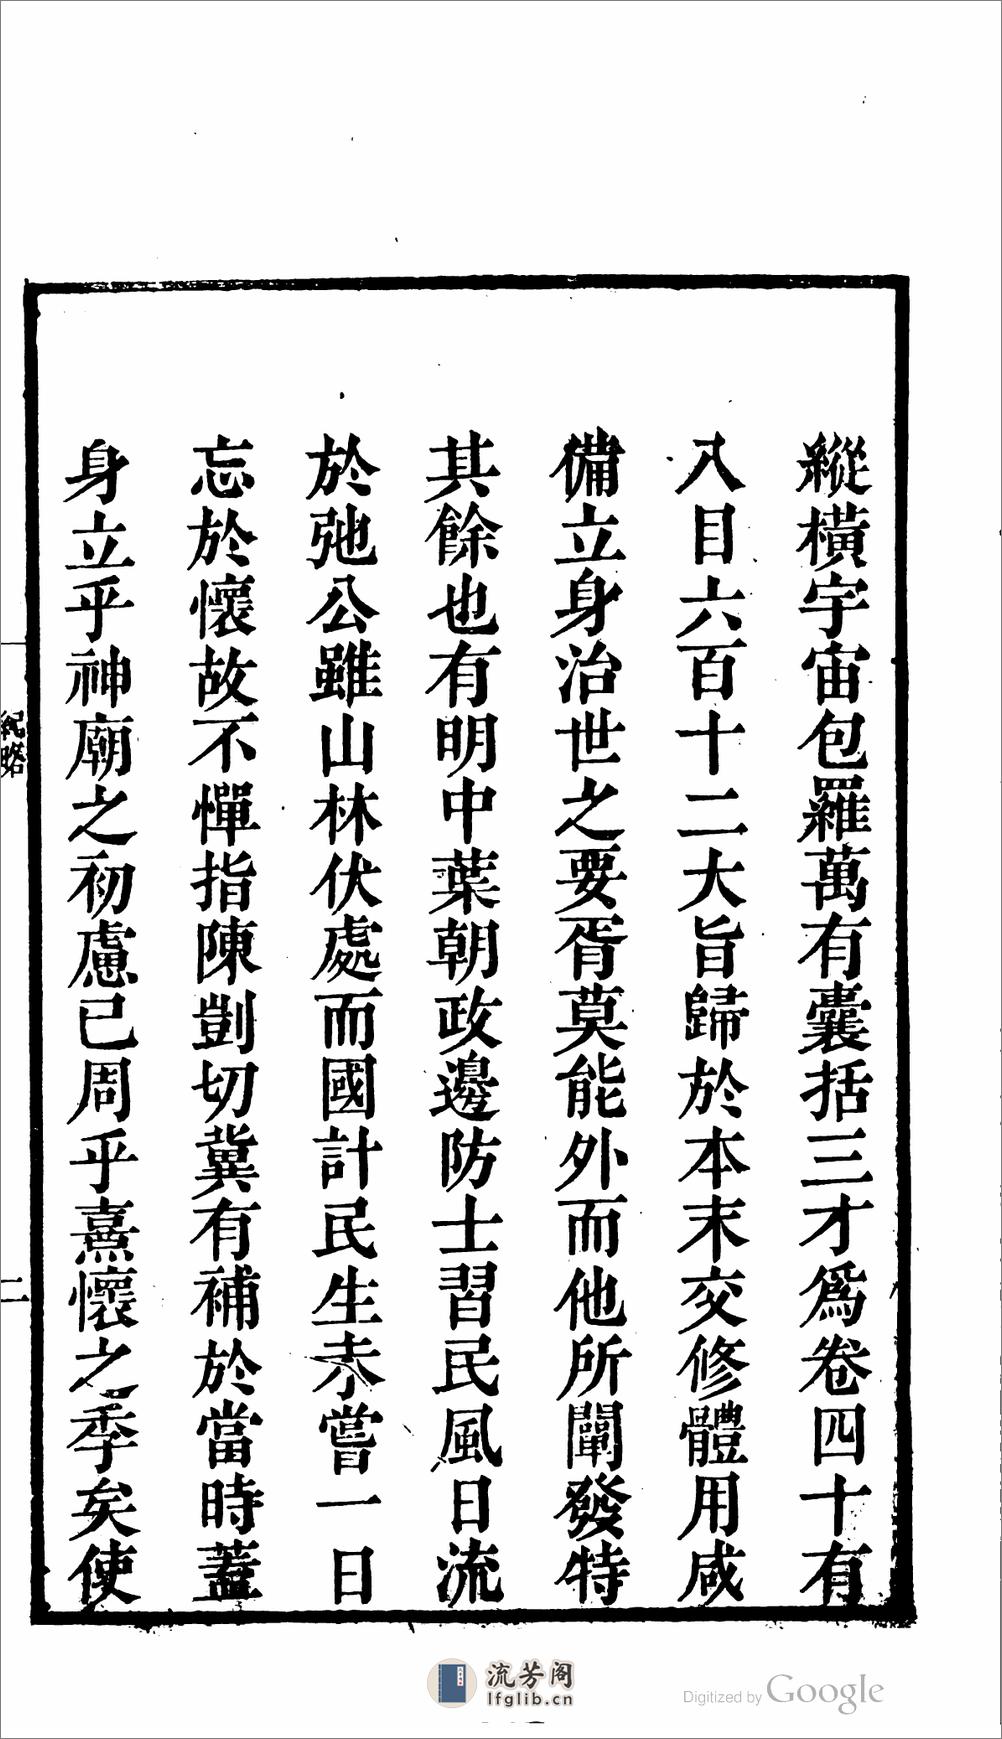 縱橫宇宙包羅萬有囊括三才爲卷四十有
八目六百十二大旨歸於本末交修體用咸
備立身治世之要胥莫能外而他所闡發特
其餘也有明中葉朝政邊防士習民風日流
於弛公雖山林伏處而國計民生未嘗一日
忘於懷故不憚指陳剴切冀有補於當時蓋
身立乎神廟之初慮已周乎熹懷之季矣使
紀略
二
流芳阁
lfglib.cn
Digitized by Google